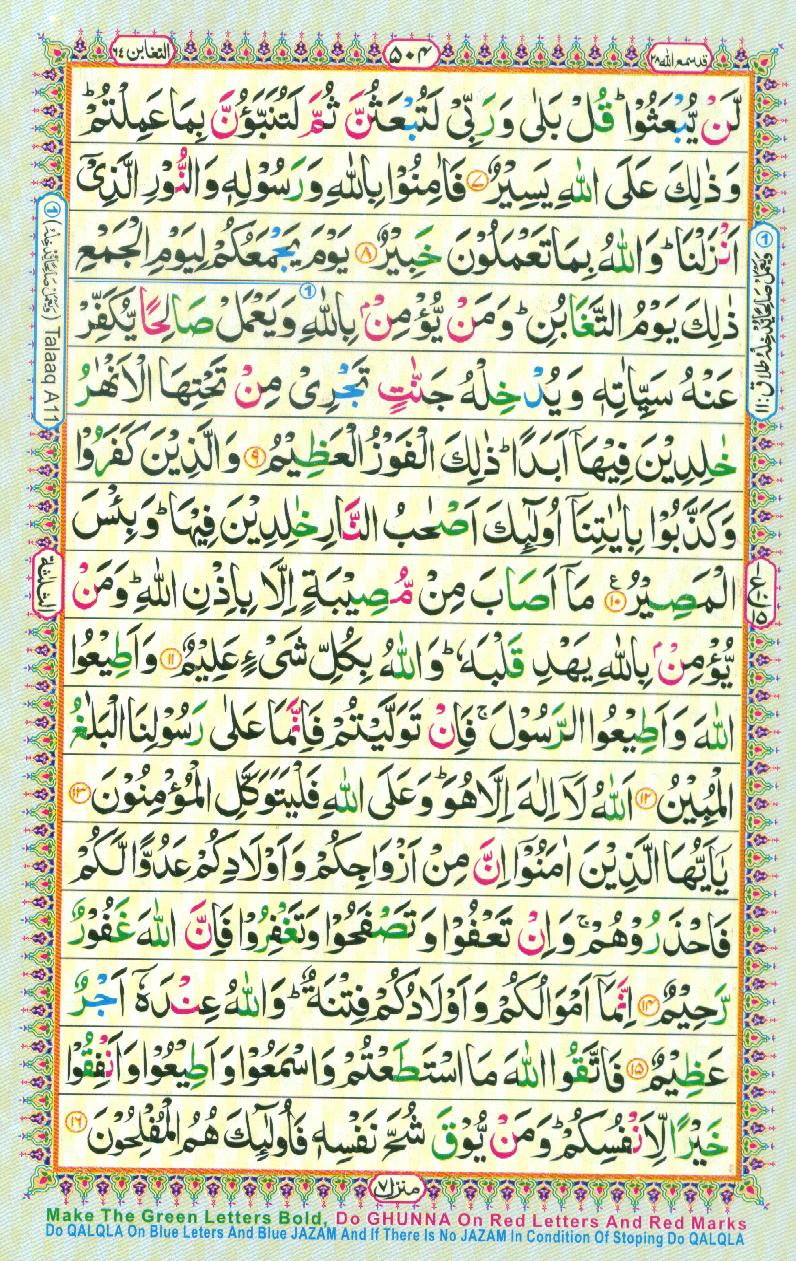 التغابن ٦٤
٥٠٤
قد سمع الله ٢٨
لَّنْ يُّبْعَثُوْا ؕ قُلْ بَلٰى وَ رَبِّىْ لَتُبْعَثُنَّ ثُمَّ لَتُنَبَّؤُنَّ بِمَا عَمِلْتُمْ ؕ
وَ ذٰلِكَ عَلَى اللّٰهِ يَسِيْرٌ ۝٧ فَاٰمِنُوْا بِاللّٰهِ وَ رَسُوْلِهٖ وَ النُّوْرِ الَّذِىْۤ
اَنْزَلْنَا ؕ وَ اللّٰهُ بِمَا تَعْمَلُوْنَ خَبِيْرٌ ۝٨ يَوْمَ يَجْمَعُكُمْ لِيَوْمِ الْجَمْعِ
ذٰلِكَ يَوْمُ التَّغَابُنِ ؕ وَ مَنْ يُّؤْمِنْۢ بِاللّٰهِ ① وَ يَعْمَلْ صَالِحًا يُّكَفِّرْ
عَنْهُ سَيِّاٰتِهٖ وَ يُدْخِلْهُ جَنّٰتٍ تَجْرِىْ مِنْ تَحْتِهَا الْاَنْهٰرُ
خٰلِدِيْنَ فِيْهَاۤ اَبَدًا ؕ ذٰلِكَ الْفَوْزُ الْعَظِيْمُ ۝٩ وَ الَّذِيْنَ كَفَرُوْا
وَ كَذَّبُوْا بِاٰيٰتِنَاۤ اُولٰٓئِكَ اَصْحٰبُ النَّارِ خٰلِدِيْنَ فِيْهَا ؕ وَ بِئْسَ
الْمَصِيْرُ ۝١٠ ع مَاۤ اَصَابَ مِنْ مُّصِيْبَةٍ اِلَّا بِاِذْنِ اللّٰهِ ؕ وَ مَنْ
يُّؤْمِنْۢ بِاللّٰهِ يَهْدِ قَلْبَهٗ ؕ وَ اللّٰهُ بِكُلِّ شَىْءٍ عَلِيْمٌ ۝١١ وَ اَطِيْعُوا
اللّٰهَ وَ اَطِيْعُوا الرَّسُوْلَ ۚ فَاِنْ تَوَلَّيْتُمْ فَاِنَّمَا عَلٰى رَسُوْلِنَا الْبَلٰغُ
الْمُبِيْنُ ۝١٢ اَللّٰهُ لَاۤ اِلٰهَ اِلَّا هُوَ ؕ وَ عَلَى اللّٰهِ فَلْيَتَوَكَّلِ الْمُؤْمِنُوْنَ ۝١٣
يٰۤاَيُّهَا الَّذِيْنَ اٰمَنُوْۤا اِنَّ مِنْ اَزْوَاجِكُمْ وَ اَوْلَادِكُمْ عَدُوًّا لَّكُمْ
فَاحْذَرُوْهُمْ ۚ وَ اِنْ تَعْفُوْا وَ تَصْفَحُوْا وَ تَغْفِرُوْا فَاِنَّ اللّٰهَ غَفُوْرٌ
رَّحِيْمٌ ۝١٤ اِنَّمَاۤ اَمْوَالُكُمْ وَ اَوْلَادُكُمْ فِتْنَةٌ ؕ وَ اللّٰهُ عِنْدَهٗۤ اَجْرٌ
عَظِيْمٌ ۝١٥ فَاتَّقُوا اللّٰهَ مَا اسْتَطَعْتُمْ وَ اسْمَعُوْا وَ اَطِيْعُوْا وَ اَنْفِقُوْا
خَيْرًا لِّاَنْفُسِكُمْ ؕ وَ مَنْ يُّوْقَ شُحَّ نَفْسِهٖ فَاُولٰٓئِكَ هُمُ الْمُفْلِحُوْنَ ۝١٦
① (وَيَعْمَلْ صَالِحًا يُّدْخِلْهُ) Talaaq A11
① وَيَعْمَلْ صَالِحًا يُّدْخِلْهُ طلاق:١١
منزل ٧
Make The Green Letters Bold, Do GHUNNA On Red Letters And Red Marks
Do QALQLA On Blue Leters And Blue JAZAM And If There Is No JAZAM In Condition Of Stoping Do QALQLA